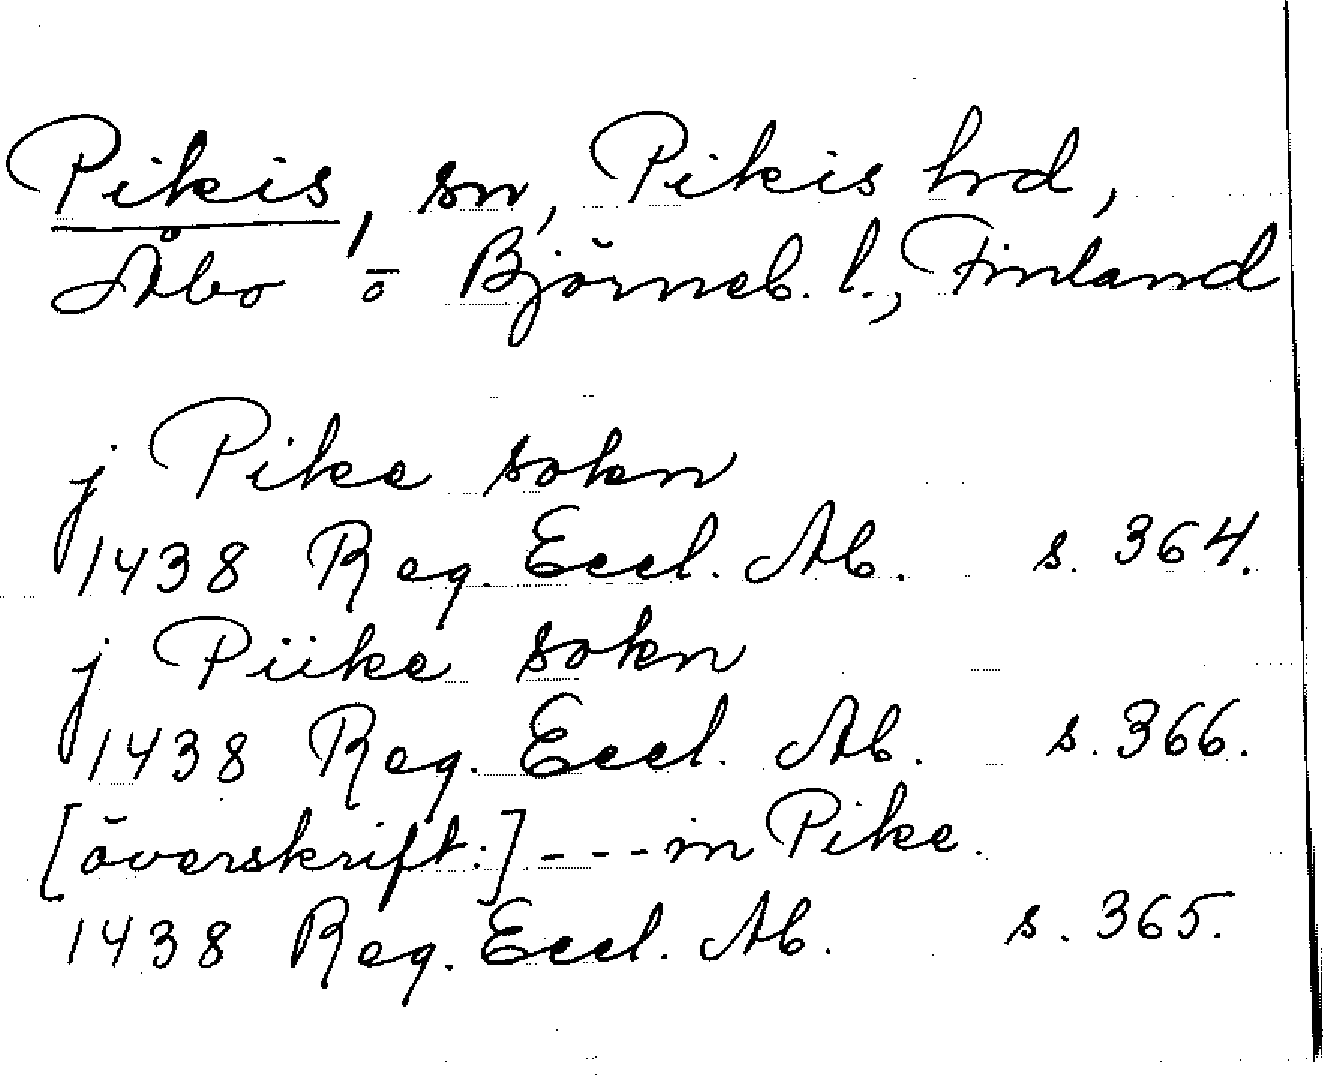 Pikis, sn, Pikis hrd,
Åbo o Björneb. l., Finland
j Pike sokn
1438 Reg. Eccl. Ab. s. 364.
j Piike sokn
1438 Reg. Eccl. Ab. s. 366.
[överskrift:] - - - in Pike.
1438 Reg. Eccl. Ab. s. 365.